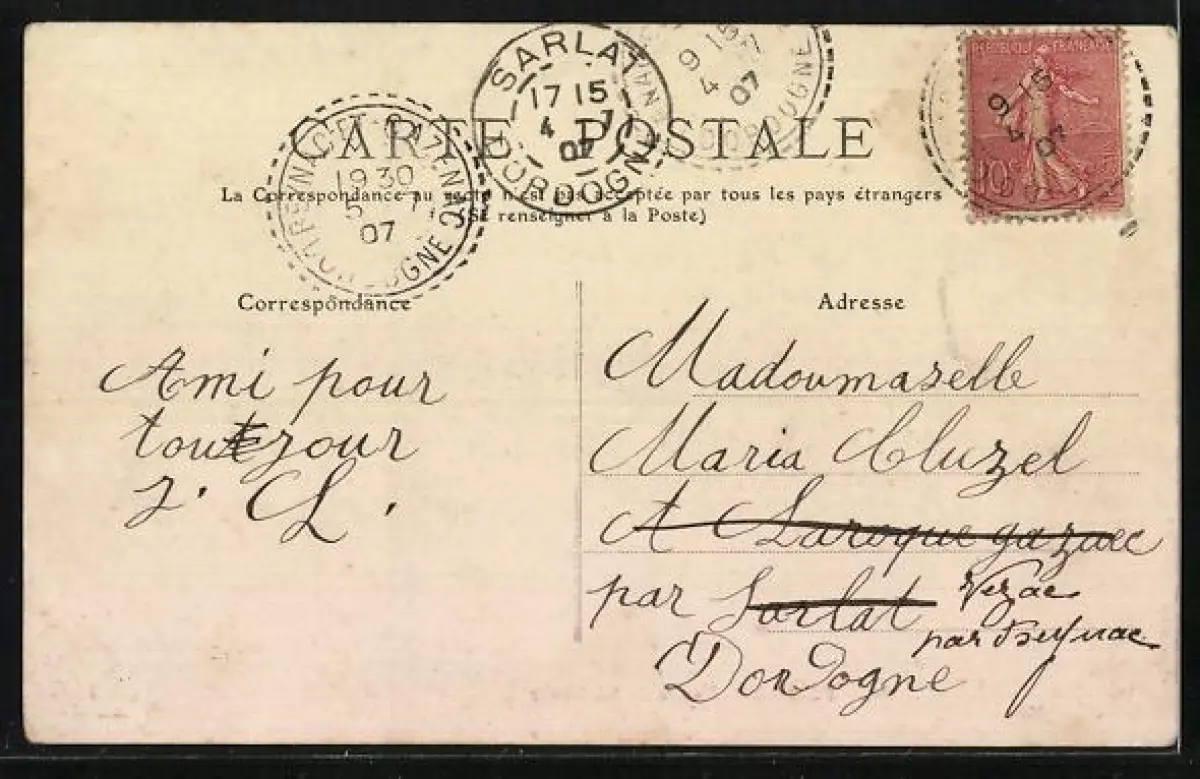 SARLAT
17 15
4 7
07
DORDOGNE
9 15
4
07
DORDOGNE
REPUBLIQUE FRANÇAISE
9 15
4
07
10c
CARTE POSTALE
19 30
5
07
La Correspondance au recto n'est pas acceptée par tous les pays étrangers
(Se renseigner à la Poste)
Correspondance
Adresse
Ami pour
toutjour
J. CL.
Madoumaselle
Maria Cluzel
A Laroque gazuec
par Sarlat Vezac
par Beynac
Dordogne